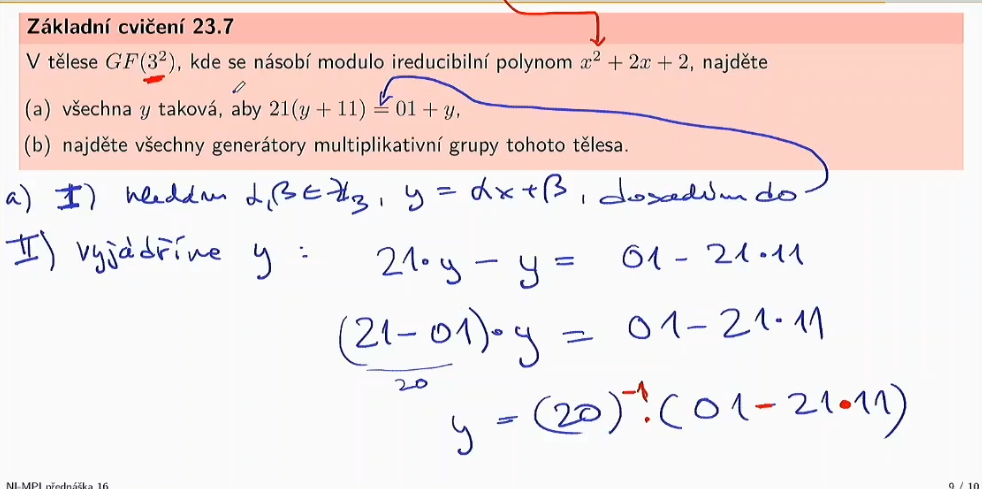 Základní cvičení 23.7
V tělese GF(3²), kde se násobí modulo ireducibilní polynom x² + 2x + 2, najděte
(a) všechna y taková, aby 21(y + 11) = 01 + y,
(b) najděte všechny generátory multiplikativní grupy tohoto tělesa.
a) I) hledám α, β ∈ ℤ₃, y = αx + β, dosadím do
II) vyjádříme y : 21·y − y = 01 − 21·11
(21 − 01)·y = 01 − 21·11
20
y = (20)⁻¹·(01 − 21·11)
NI-MPI přednáška 16
9 / 10